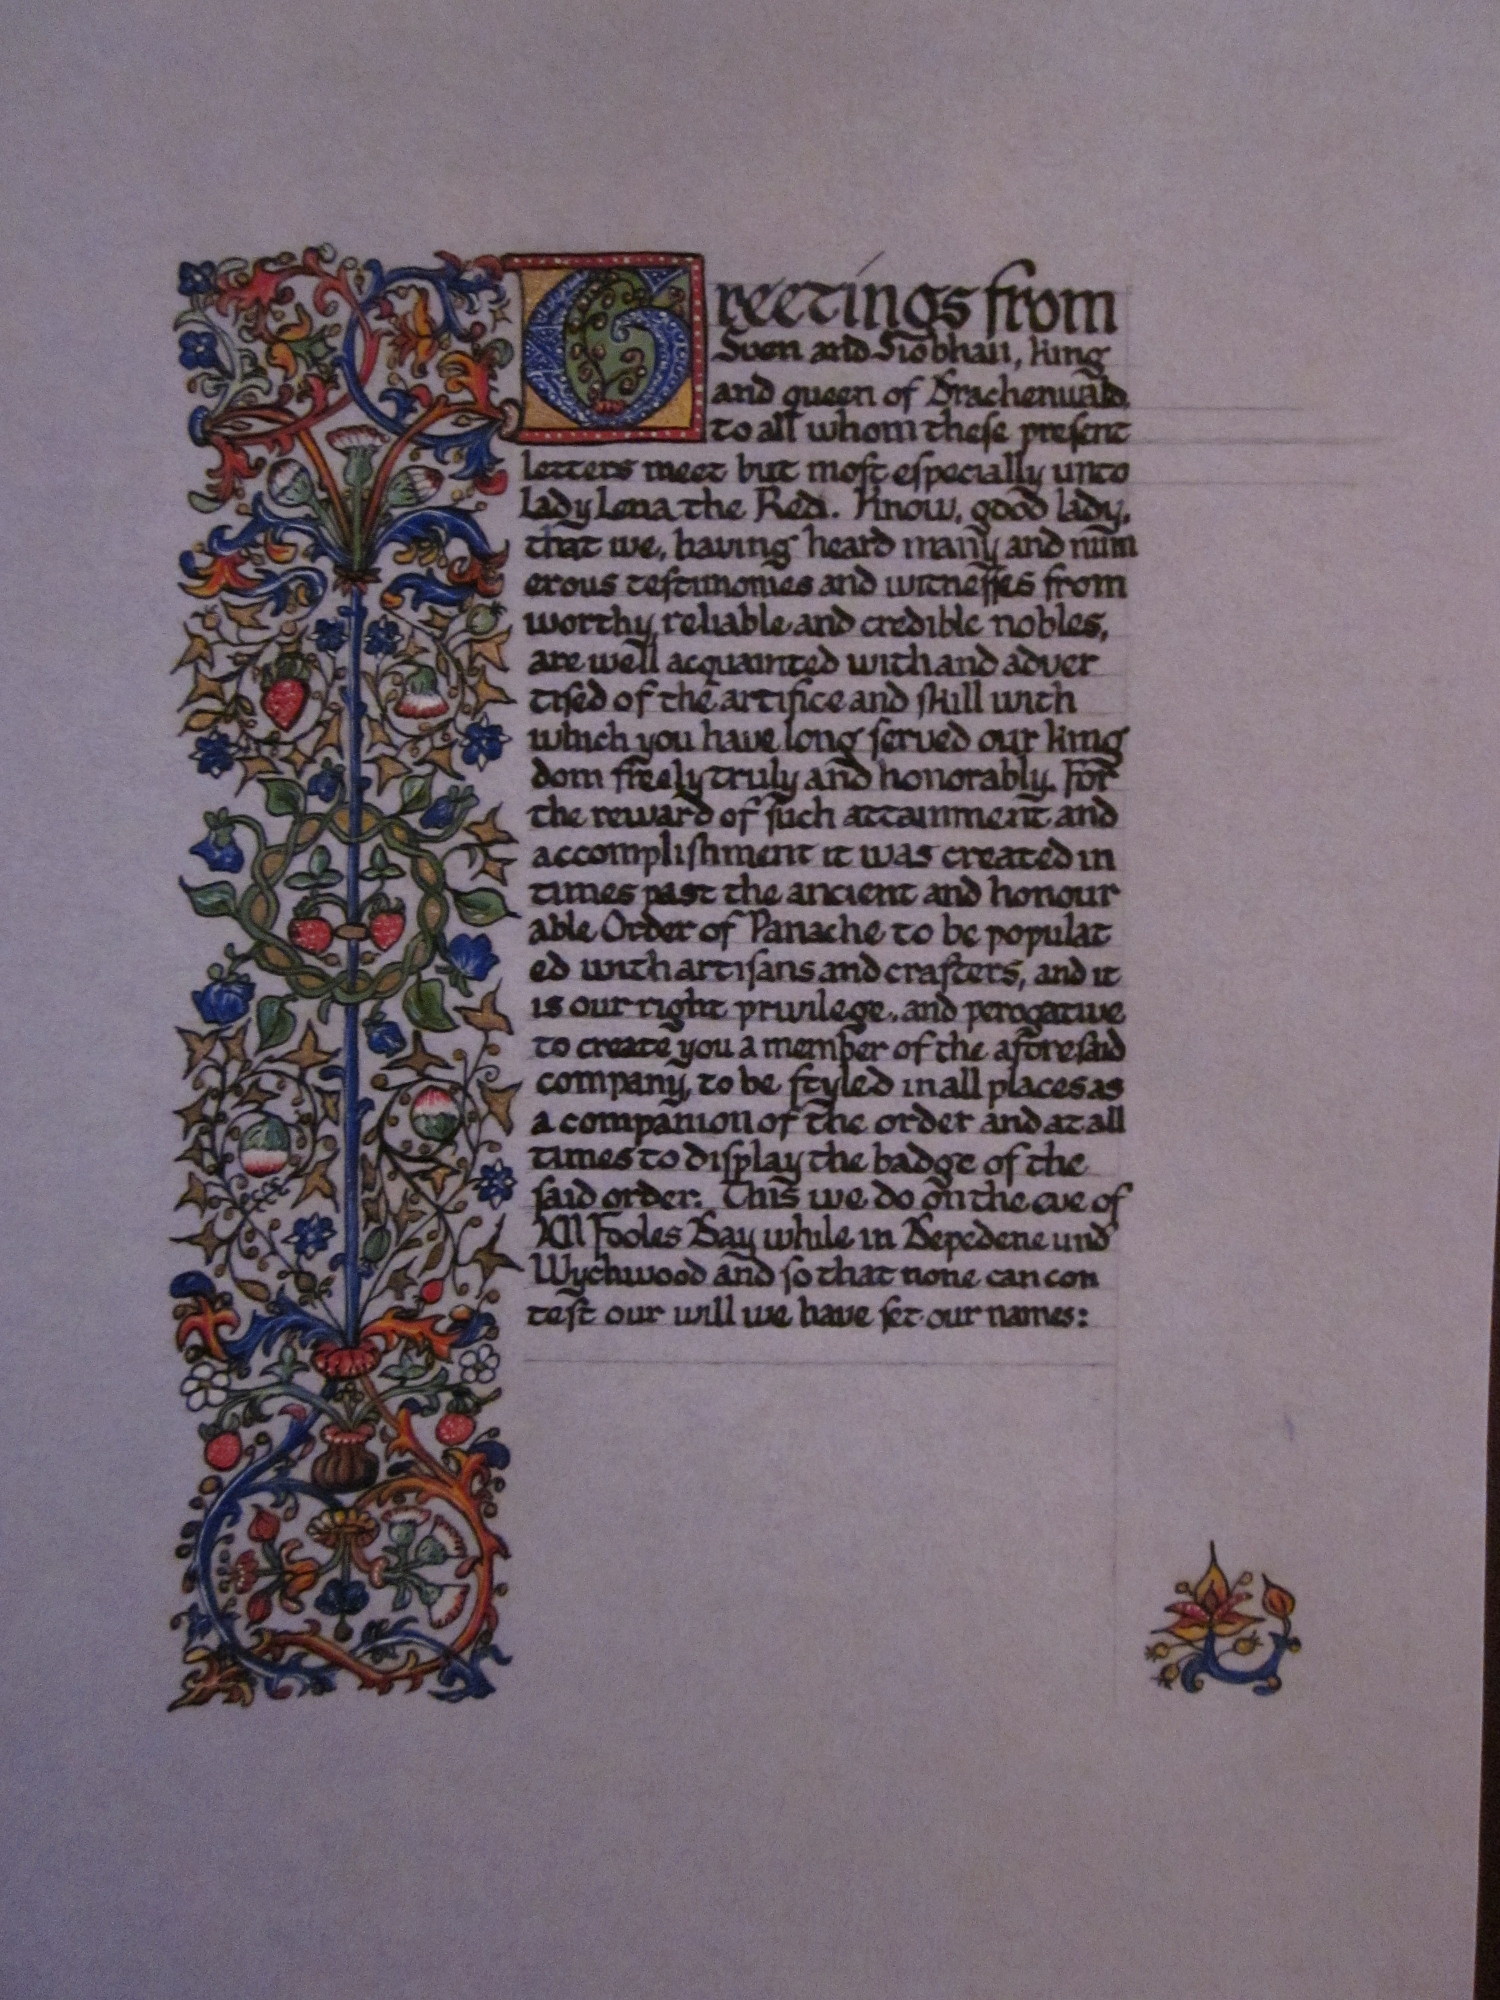 Greetings from
Sven and Siobhan, king
and queen of Drachenwald
to all whom theſe preſent
letters meet but moſt eſpecially unto
lady Lena the Red. Know, good lady,
that we, having heard many and num
erous teſtimonies and witneſſes from
worthy, reliable and credible nobles,
are well acquainted with and adver
tiſed of the artifice and ſkill with
which you have long ſerved our king
dom freely truly and honorably. For
the reward of ſuch attainment and
accompliſhment it was created in
times past the ancient and honour
able Order of Panache to be populat
ed with artiſans and crafters, and it
is our right privilege, and perogative
to create you a member of the aforeſaid
company, to be ſtyled in all places as
a companion of the order and at all
times to diſplay the badge of the
ſaid order. This we do on the eve of
XII Fooles Day while in Depedene und
Wychwood and ſo that none can con
teſt our will we have ſet our names: